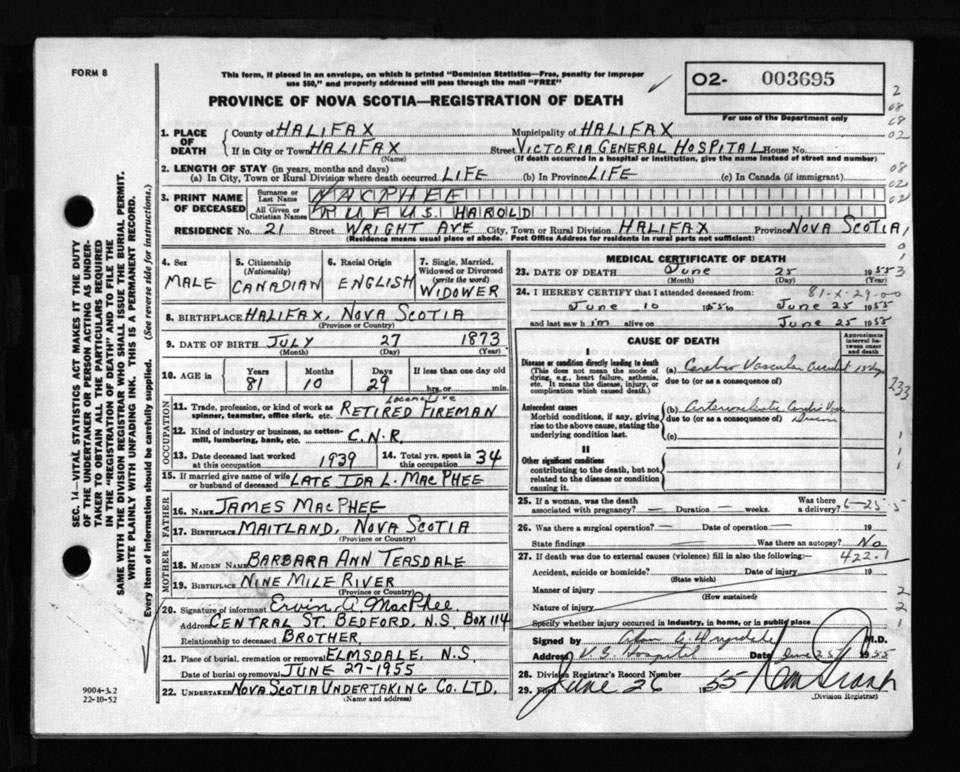 FORM 8
This form, if placed in an envelope, on which is printed "Dominion Statistics—Free, penalty for improper
use $50," and properly addressed will pass through the mail "FREE"
02- 003695
For use of the Department only
PROVINCE OF NOVA SCOTIA—REGISTRATION OF DEATH
1. PLACE OF DEATH
County of HALIFAX Municipality of HALIFAX
If in City or Town HALIFAX (Name) Street VICTORIA GENERAL HOSPITAL House No.
(If death occurred in a hospital or institution, give the name instead of street and number)
2. LENGTH OF STAY (in years, months and days)
(a) In City, Town or Rural Division where death occurred LIFE (b) In Province LIFE (c) In Canada (if immigrant)
3. PRINT NAME OF DECEASED
Surname or Last Name MACPHEE
All Given or Christian Names RUFUS HAROLD
RESIDENCE No. 21 Street WRIGHT AVE City, Town or Rural Division HALIFAX Province NOVA SCOTIA
(Residence means usual place of abode. Post Office Address for residents in rural parts not sufficient)
4. Sex MALE
5. Citizenship (Nationality) CANADIAN
6. Racial Origin ENGLISH
7. Single, Married, Widowed or Divorced (write the word) WIDOWER
8. BIRTHPLACE HALIFAX, NOVA SCOTIA
(Province or Country)
9. DATE OF BIRTH JULY 27 1873
(Month) (Day) (Year)
10. AGE in Years 81 Months 10 Days 29 If less than one day hrs. or min.
OCCUPATION
11. Trade, profession, or kind of work as spinner, teamster, office clerk, etc. Locomotive RETIRED FIREMAN
12. Kind of industry or business, as cotton-mill, lumbering, bank, etc. C.N.R.
13. Date deceased last worked at this occupation 1939
14. Total yrs. spent in this occupation 34
15. If married give name of wife or husband of deceased LATE IDA L. MACPHEE
FATHER
16. NAME JAMES MACPHEE
17. BIRTHPLACE MAITLAND, NOVA SCOTIA
(Province or Country)
MOTHER
18. MAIDEN NAME BARBARA ANN TEASDALE
19. BIRTHPLACE NINE MILE RIVER
(Province or Country)
20. Signature of informant Ervin A. MacPhee
Address CENTRAL ST. BEDFORD, N.S. BOX 114
Relationship to deceased BROTHER
21. Place of burial, cremation or removal ELMSDALE, N.S.
Date of burial or removal JUNE 27-1955
22. UNDERTAKER NOVA SCOTIA UNDERTAKING CO. LTD.
(Name and address)
MEDICAL CERTIFICATE OF DEATH
23. DATE OF DEATH June 25 1955
(Month) (Day) (Year)
24. I HEREBY CERTIFY that I attended deceased from: 81-X-29-00
June 10 1955 to June 25 1955
and last saw him alive on June 25 1955
CAUSE OF DEATH
Approximate interval between onset and death
I
Disease or condition directly leading to death
(This does not mean the mode of dying, e.g., heart failure, asthenia, etc. It means the disease, injury, or complication which caused death.)
(a) Cerebro Vascular Accident
due to (or as a consequence of)
Antecedent causes
Morbid conditions, if any, giving rise to the above cause, stating the underlying condition last.
(b)
due to (or as a consequence of)
(c)
II
Other significant conditions
contributing to the death, but not related to the disease or condition causing it.
25. If a woman, was the death associated with pregnancy? — Duration — weeks. Was there a delivery? 6-25-5
26. Was there a surgical operation? — Date of operation — 19
State findings Was there an autopsy? No
27. If death was due to external causes (violence) fill in also the following:— 422.1
Accident, suicide or homicide? (State which) Date of injury 19
Manner of injury (How sustained)
Nature of injury
Specify whether injury occurred in industry, in home, or in public place
Signed by M.D.
Address V. G. Hospital Date June 25 1955
28. Division Registrar's Record Number
29. June 26 1955
(Division Registrar)
SEC. 14—VITAL STATISTICS ACT MAKES IT THE DUTY
OF THE UNDERTAKER OR PERSON ACTING AS UNDER-
TAKER TO OBTAIN ALL THE PARTICULARS REQUIRED
IN THE "REGISTRATION OF DEATH" AND TO FILE THE
SAME WITH THE DIVISION REGISTRAR WHO SHALL ISSUE THE BURIAL PERMIT.
WRITE PLAINLY WITH UNFADING INK. THIS IS A PERMANENT RECORD.
Every item of information should be carefully supplied. (See reverse side for instructions.)
2
08
68
02
08
02
02
1
0
1
3
233
1
1
1
2
2
1
9004-3.2
22-10-52